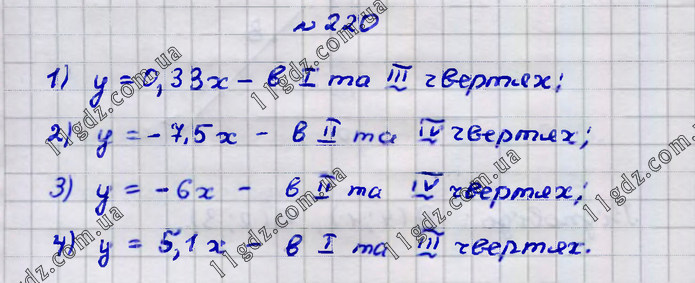 № 220
1) y = 0,33x - в I та III чвертях;
2) y = - 7,5x - в II та IV чвертях;
3) y = - 6x - в II та IV чвертях;
4) y = 5,1x - в I та III чвертях.
11gdz.com.ua
11gdz.com.ua
11gdz.com.ua
11gdz.com.ua
11gdz.com.ua
11gdz.com.ua
11gdz.com.ua